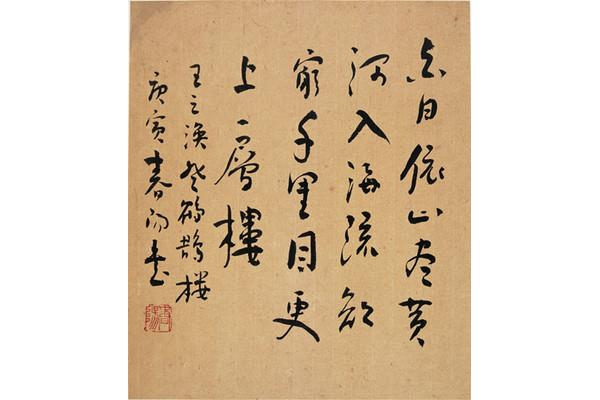 白日依山尽黄
河入海流欲
窮千里目更
上一層樓
王之涣登鹳鹊楼
庚寅春书